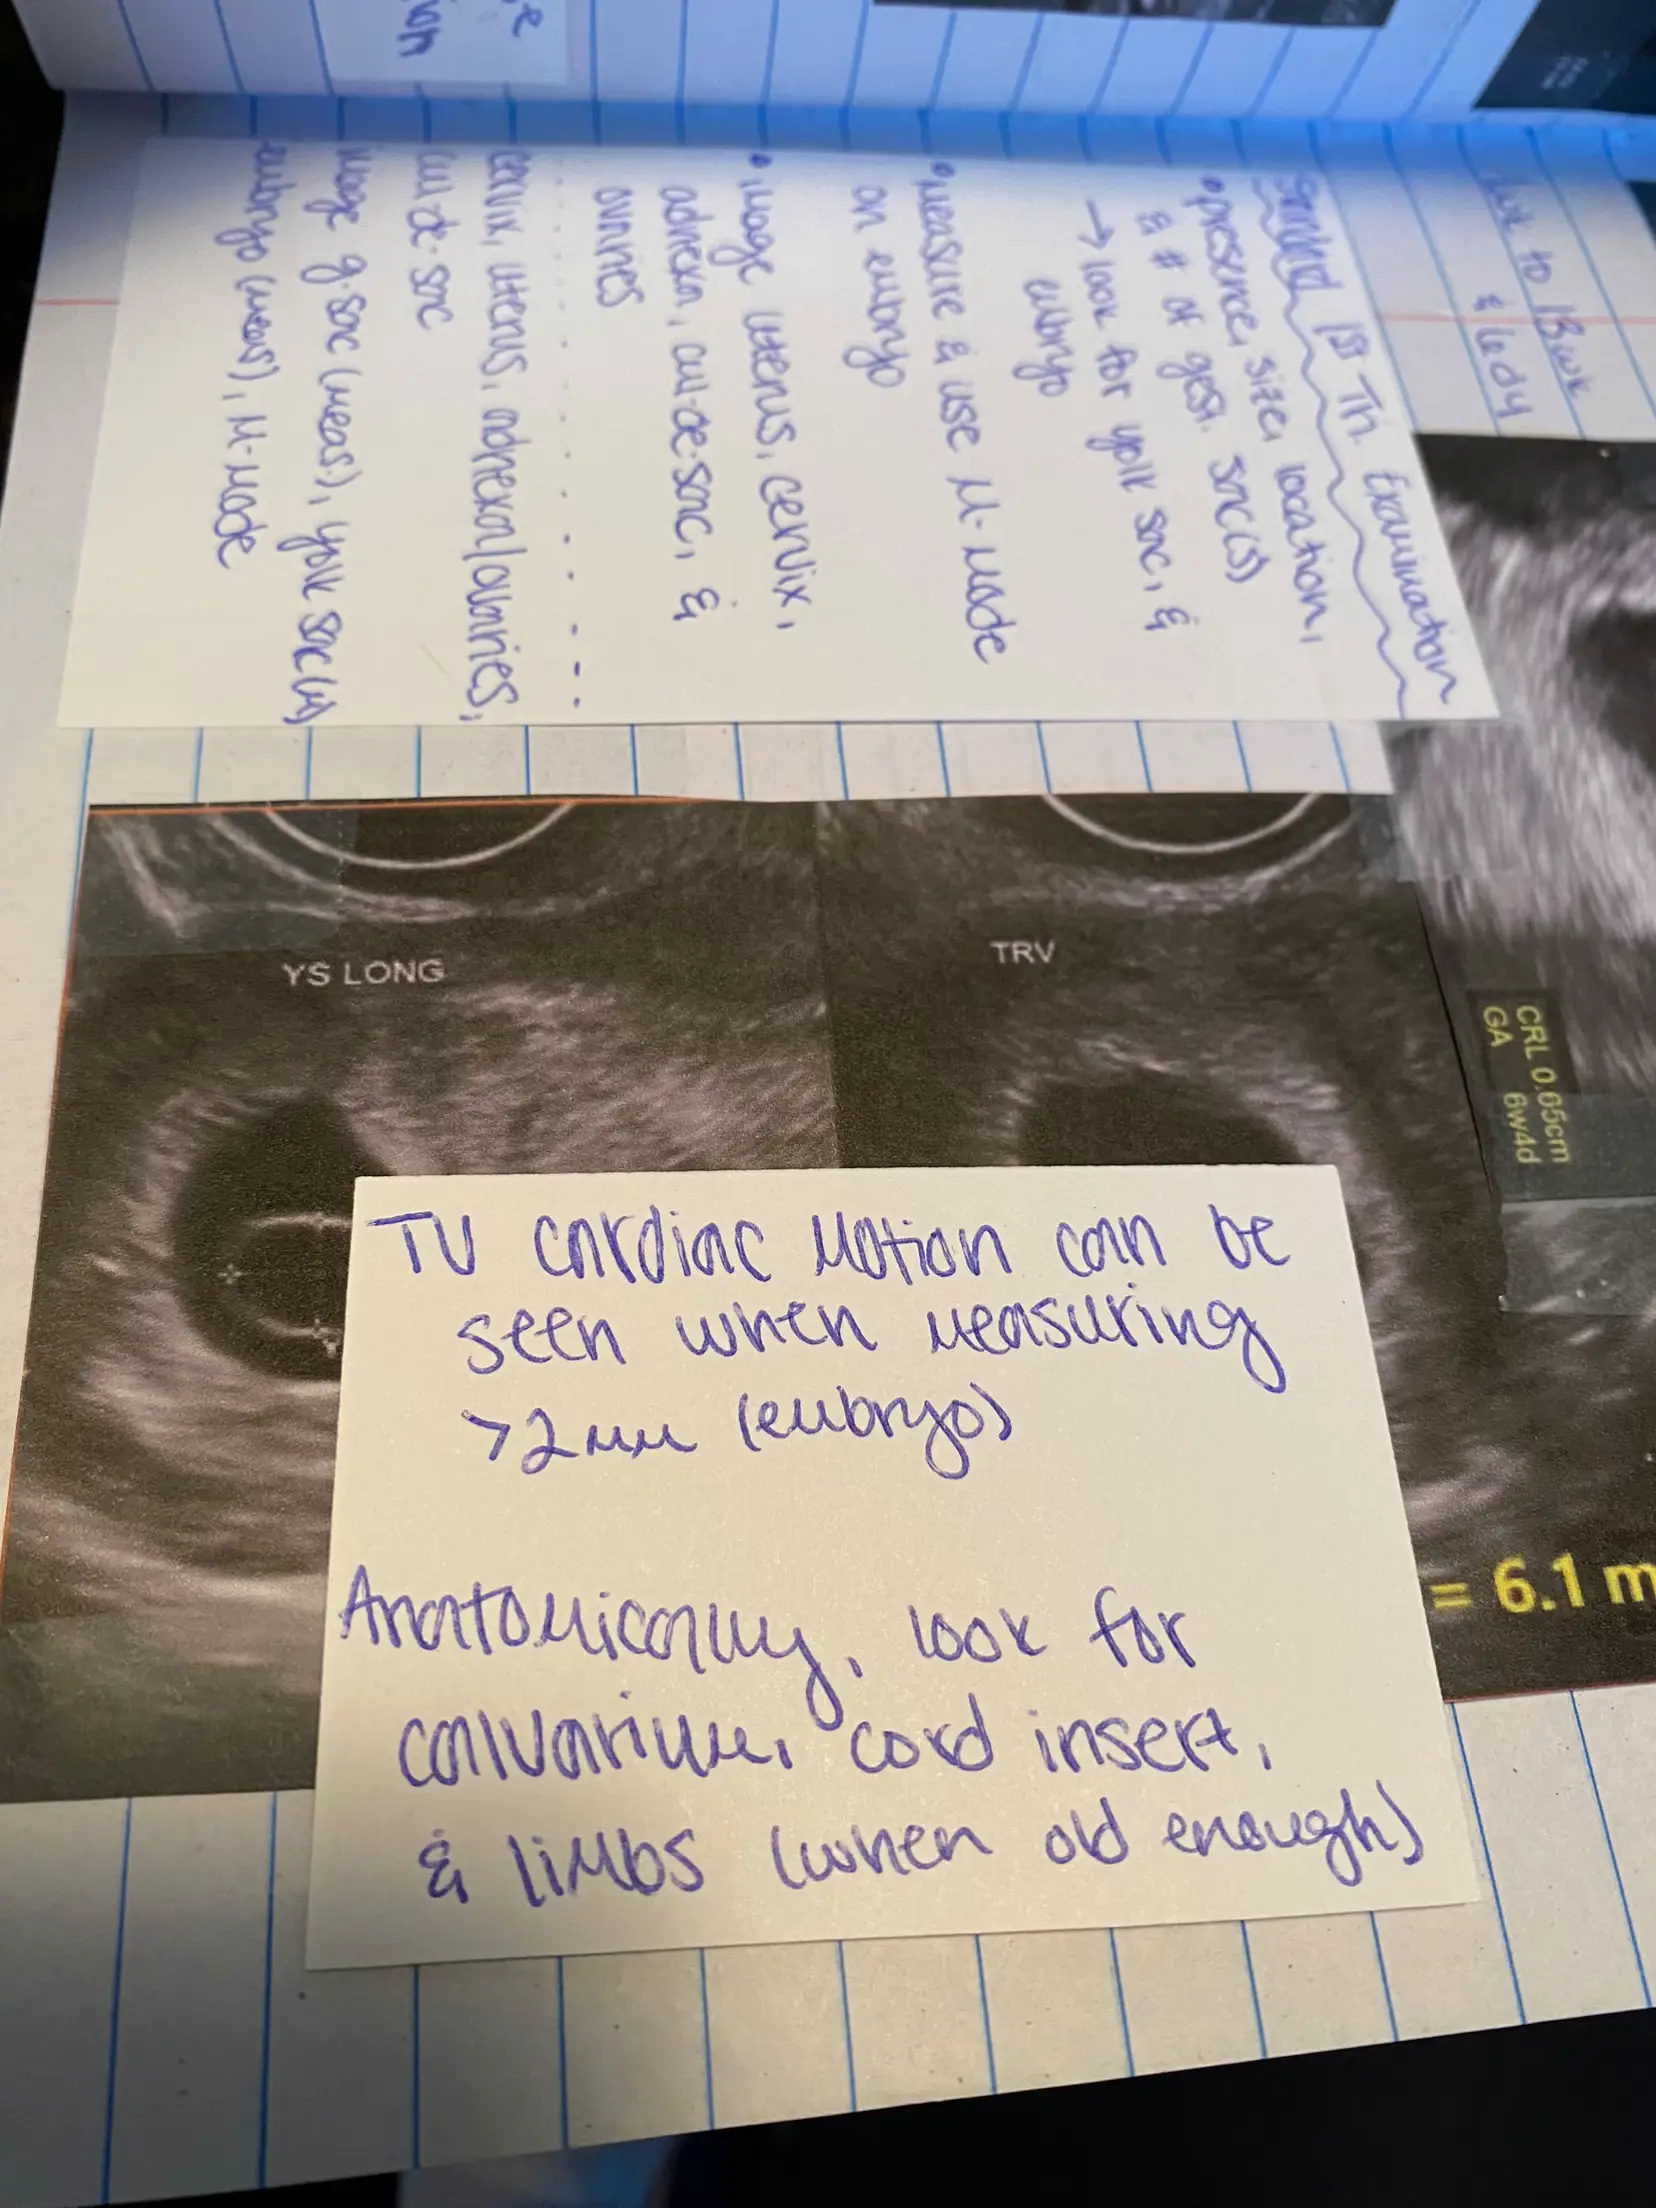 Standard 1st Tri. Examination
• presence, size, location,
& # of gest. sac(s)
→ look for yolk sac, &
embryo
• measure & use M-mode
on embryo
• image uterus, cervix,
adnexa, cul-de-sac, &
ovaries
cervix, uterus, adnexa/ovaries,
cul-de-sac
image g.sac (meas), yolk sac (M)
embryo (meas), M-mode
to 13wk
& 6d
YS LONG
TRV
CRL 0.65cm
GA 6w4d
= 6.1 m
TV cardiac motion can be
seen when measuring
>2mm (embryo)
Anatomically, look for
calvarium, cord insert,
& limbs (when old enough)